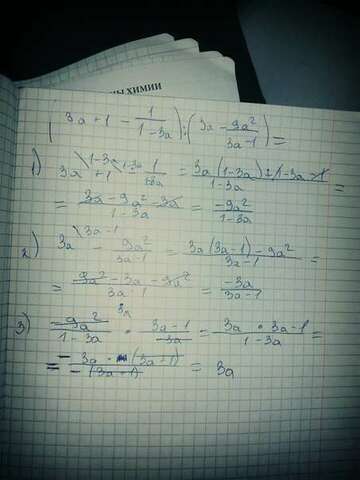 НЫ ХИМИИ
(3a + 1 - 1/(1-3a)) : (3a - 9a²/(3a-1)) =
1) 3a + 1 - 1/(1-3a) = (3a(1-3a) + 1-3a - 1)/(1-3a) =
= (3a - 9a² - 3a)/(1-3a) = -9a²/(1-3a)
2) 3a - 9a²/(3a-1) = (3a(3a-1) - 9a²)/(3a-1) =
= (9a² - 3a - 9a²)/(3a-1) = -3a/(3a-1)
3) -9a²/(1-3a) · (3a-1)/3a = (3a · 3a-1)/(1-3a) =
= - 3a · (3a-1)/-(3a-1) = 3a